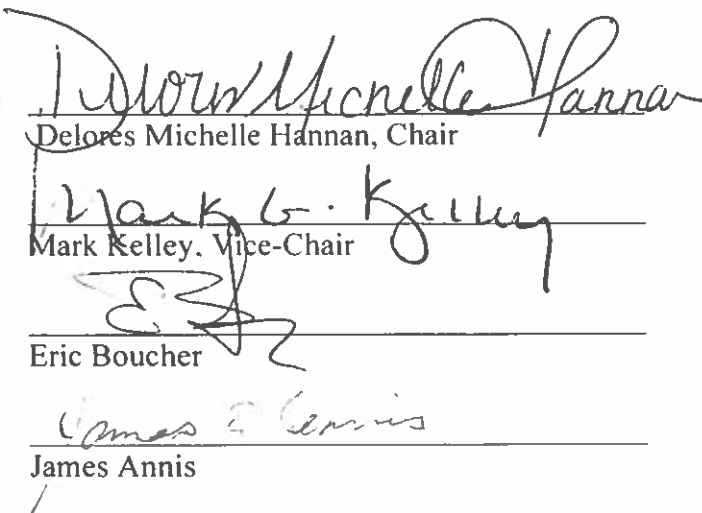 Delores Michelle Hannan
Delores Michelle Hannan, Chair
Mark G. Kelley
Mark Kelley, Vice-Chair
Eric Boucher
James Annis
James Annis